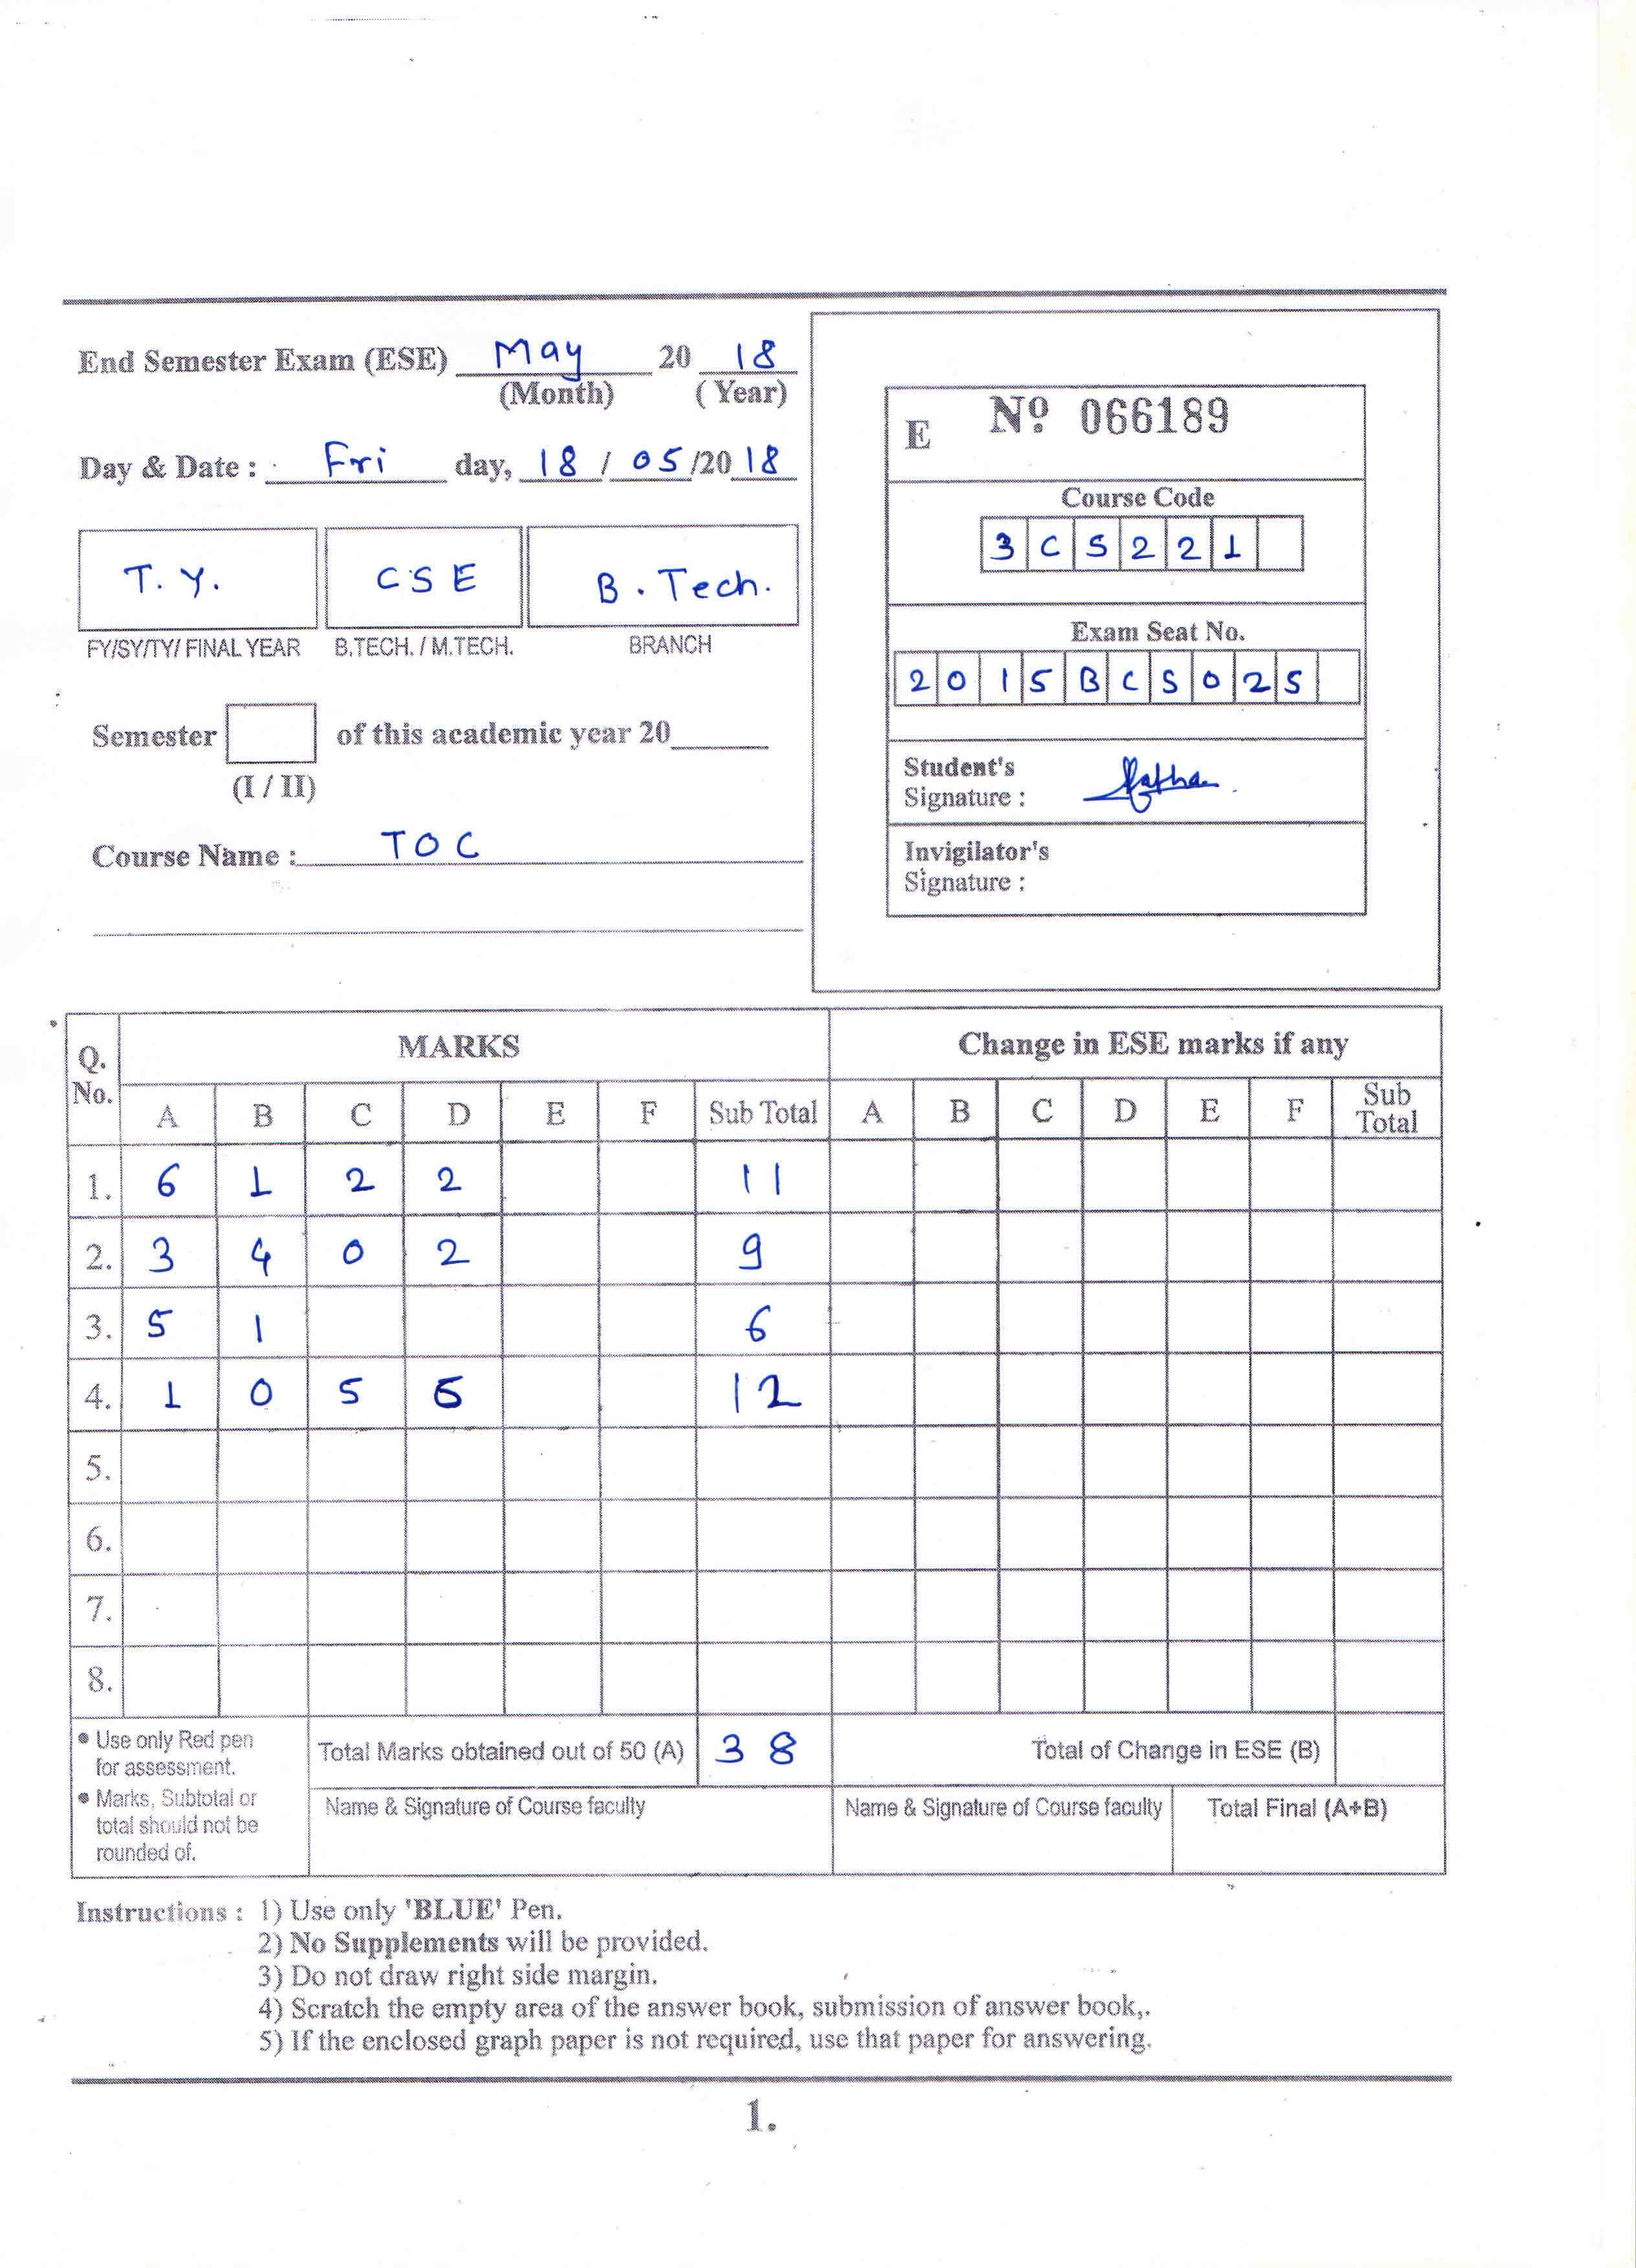 End Semester Exam (ESE) May 20 18
(Month) (Year)
Day & Date : Fri day, 18 / 05 /20 18
T. Y. CSE B. Tech.
FY/SY/TY/ FINAL YEAR B.TECH. / M.TECH. BRANCH
Semester of this academic year 20
(I / II)
Course Name : TOC
E Nº 066189
Course Code
3 C S 2 2 1
Exam Seat No.
2 0 1 5 B C S 0 2 5
Student's
Signature :
Invigilator's
Signature :
Q. No. MARKS Change in ESE marks if any
A B C D E F Sub Total A B C D E F Sub Total
1. 6 1 2 2 11
2. 3 4 0 2 9
3. 5 1 6
4. 1 0 5 12
5.
6.
7.
8.
• Use only Red pen
for assessment.
• Marks, Subtotal or
total should not be
rounded of.
Total Marks obtained out of 50 (A) 38 Total of Change in ESE (B)
Name & Signature of Course faculty Name & Signature of Course faculty Total Final (A+B)
Instructions : 1) Use only 'BLUE' Pen.
2) No Supplements will be provided.
3) Do not draw right side margin.
4) Scratch the empty area of the answer book, submission of answer book,.
5) If the enclosed graph paper is not required, use that paper for answering.
1.